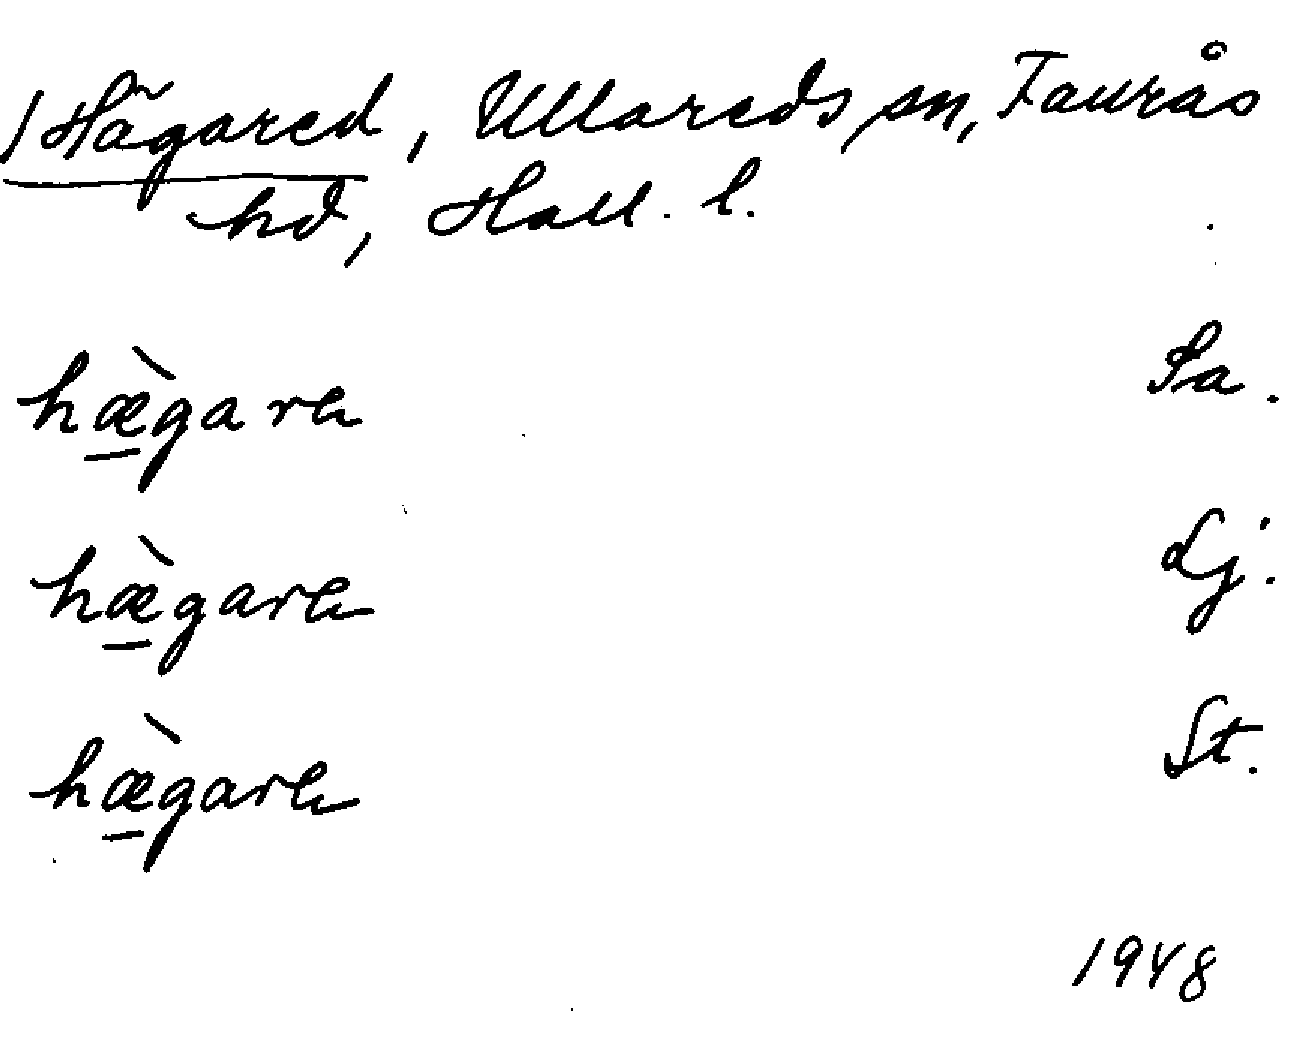 /Hägared, Ullareds sn, Faurås
hd, Hall. l.
hæ̲̀gare Sa.
hæ̲̀gare Lj.
hæ̲̀gare St.
1948